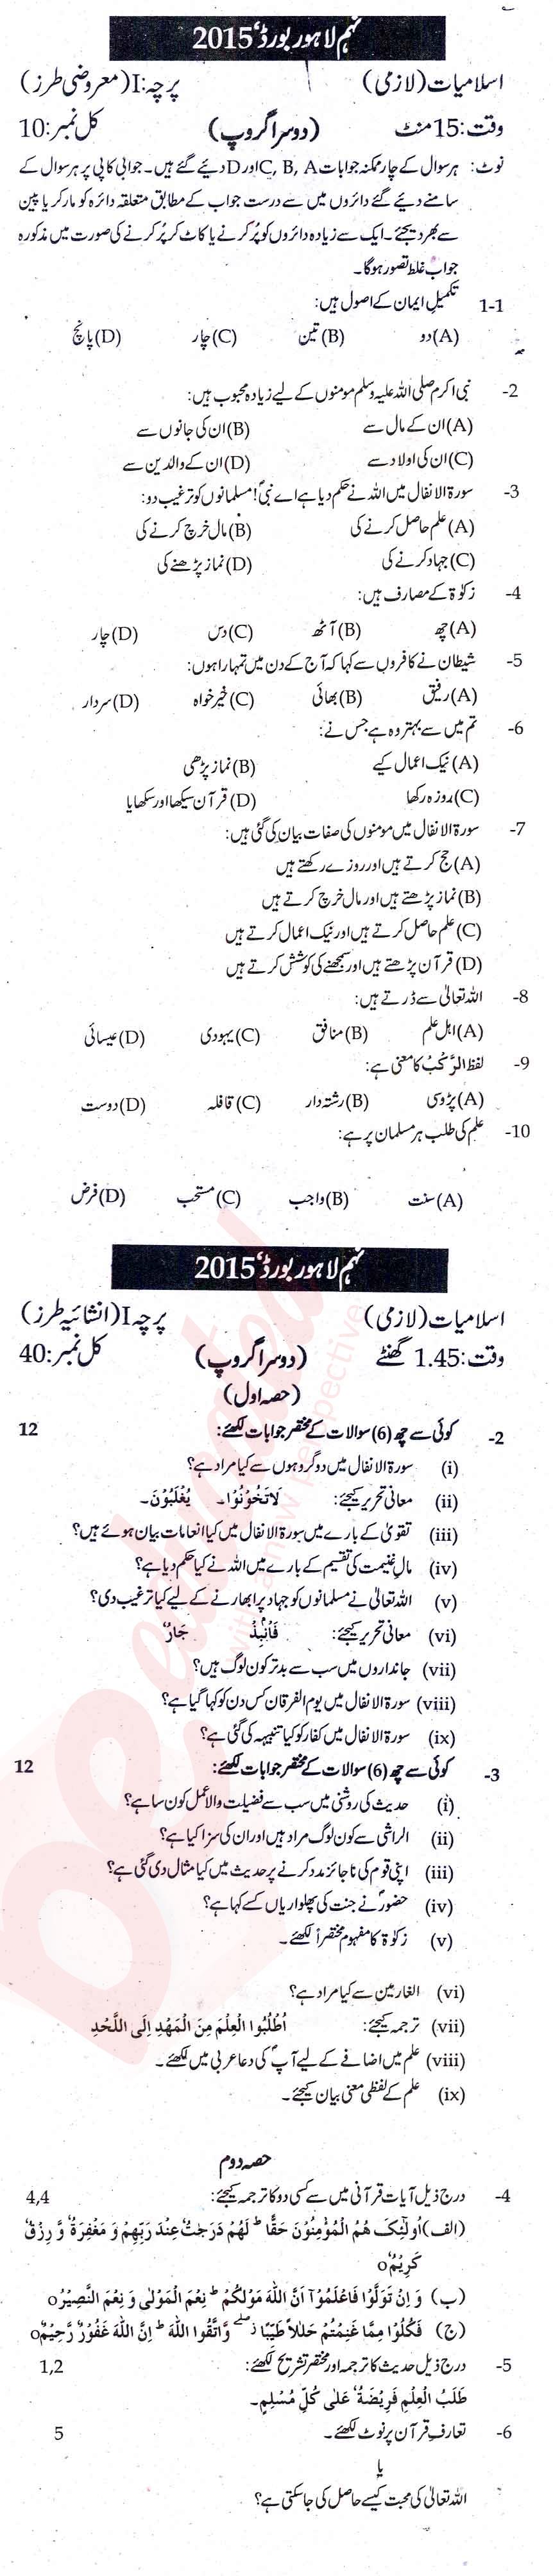 نہم لاہور بورڈ، 2015
اسلامیات (لازمی) پرچہ: I (معروضی طرز)
وقت: 15 منٹ (دوسرا گروپ) کل نمبر: 10
نوٹ: ہر سوال کے چار ممکنہ جوابات C, B, A اور D دیئے گئے ہیں۔ جوابی کاپی پر ہر سوال کے
سامنے دیئے گئے دائروں میں سے درست جواب کے مطابق متعلقہ دائرہ کو مارکر یا پین
سے بھر دیجئے۔ ایک سے زیادہ دائروں کو پُر کرنے یا کاٹ کر پُر کرنے کی صورت میں مذکورہ
جواب غلط تصور ہو گا۔
1-1 تکمیلِ ایمان کے اصول ہیں:
(A) دو (B) تین (C) چار (D) پانچ
2- نبی اکرم صلی اللہ علیہ وسلم مومنوں کے لیے زیادہ محبوب ہیں:
(A) ان کے مال سے (B) ان کی جانوں سے
(C) ان کی اولاد سے (D) ان کے والدین سے
3- سورۃ الانفال میں اللہ نے حکم دیا ہے اے نبیؐ! مسلمانوں کو ترغیب دو:
(A) علم حاصل کرنے کی (B) مال خرچ کرنے کی
(C) جہاد کرنے کی (D) نماز پڑھنے کی
4- زکوٰۃ کے مصارف ہیں:
(A) چھ (B) آٹھ (C) دس (D) چار
5- شیطان نے کافروں سے کہا کہ آج کے دن میں تمہارا ہوں:
(A) رفیق (B) بھائی (C) خیر خواہ (D) سردار
6- تم میں سے بہتر وہ ہے جس نے:
(A) نیک اعمال کیے (B) نماز پڑھی
(C) روزہ رکھا (D) قرآن سیکھا اور سکھایا
7- سورۃ الانفال میں مومنوں کی صفات بیان کی گئی ہیں:
(A) حج کرتے ہیں اور روزے رکھتے ہیں
(B) نماز پڑھتے ہیں اور مال خرچ کرتے ہیں
(C) علم حاصل کرتے ہیں اور نیک اعمال کرتے ہیں
(D) قرآن پڑھتے ہیں اور سمجھنے کی کوشش کرتے ہیں
8- اللہ تعالیٰ سے ڈرتے ہیں:
(A) اہل علم (B) منافق (C) یہودی (D) عیسائی
9- لفظ الرَّکْبُ کا معنی ہے:
(A) پڑوسی (B) رشتہ دار (C) قافلہ (D) دوست
10- علم کی طلب ہر مسلمان پر ہے:
(A) سنت (B) واجب (C) مستحب (D) فرض
نہم لاہور بورڈ، 2015
اسلامیات (لازمی) پرچہ I (انشائیہ طرز)
وقت: 1.45 گھنٹے (دوسرا گروپ) کل نمبر: 40
(حصہ اول)
2- کوئی سے چھ (6) سوالات کے مختصر جوابات لکھئے: 12
(i) سورۃ الانفال میں دو گروہوں سے کیا مراد ہے؟
(ii) معانی تحریر کیجئے: لَاتَخُوْنُوْا۔ یُغْلَبُوْنَ۔
(iii) تقویٰ کے بارے میں سورۃ الانفال میں کیا انعامات بیان ہوئے ہیں؟
(iv) مالِ غنیمت کی تقسیم کے بارے میں اللہ نے کیا حکم دیا ہے؟
(v) اللہ تعالیٰ نے مسلمانوں کو جہاد پر ابھارنے کے لیے کیا ترغیب دی؟
(vi) معانی تحریر کیجئے: فَانْبِذْ جَارٌ
(vii) جانداروں میں سب سے بدتر کون لوگ ہیں؟
(viii) سورۃ الانفال میں یوم الفرقان کس دن کو کہا گیا ہے؟
(ix) سورۃ الانفال میں کفار کو کیا تنبیہہ کی گئی ہے؟
3- کوئی سے چھ (6) سوالات کے مختصر جوابات لکھئے: 12
(i) حدیث کی روشنی میں سب سے فضیلت والا عمل کون سا ہے؟
(ii) الراشی سے کون لوگ مراد ہیں اور ان کی سزا کیا ہے؟
(iii) اپنی قوم کی ناجائز مدد کرنے پر حدیث میں کیا مثال دی گئی ہے؟
(iv) حضورؐ نے جنت کی پھلواریاں کسے کہا ہے؟
(v) زکوٰۃ کا مفہوم مختصراً لکھئے۔
(vi) الغارمین سے کیا مراد ہے؟
(vii) ترجمہ کیجئے: اُطْلُبُوا الْعِلْمَ مِنَ الْمَھْدِ اِلَی اللَّحْدِ
(viii) علم میں اضافے کے لیے آپؐ کی دعا عربی میں لکھئے۔
(ix) علم کے لفظی معنی بیان کیجئے۔
حصہ دوم
4- درج ذیل آیات قرآنی میں سے کسی دو کا ترجمہ کیجئے: 4,4
(الف) اُولٰٓئِکَ ھُمُ الْمُؤْمِنُوْنَ حَقًّا ط لَھُمْ دَرَجٰتٌ عِنْدَ رَبِّھِمْ وَ مَغْفِرَۃٌ وَّ رِزْقٌ
کَرِیْمٌ o
(ب) وَ اِنْ تَوَلَّوْا فَاعْلَمُوْٓا اَنَّ اللہَ مَوْلٰکُمْ ط نِعْمَ الْمَوْلٰی وَ نِعْمَ النَّصِیْرُ o
(ج) فَکُلُوْا مِمَّا غَنِمْتُمْ حَلٰلاً طَیِّبًا ز صلے وَّاتَّقُوا اللہَ ط اِنَّ اللہَ غَفُوْرٌ رَّحِیْمٌ o
5- درج ذیل حدیث کا ترجمہ اور مختصر تشریح لکھئے: 1,2
طَلَبُ الْعِلْمِ فَرِیْضَۃٌ عَلٰی کُلِّ مُسْلِمٍ۔
6- تعارفِ قرآن پر نوٹ لکھئے۔ 5
یا
اللہ تعالیٰ کی محبت کیسے حاصل کی جا سکتی ہے؟